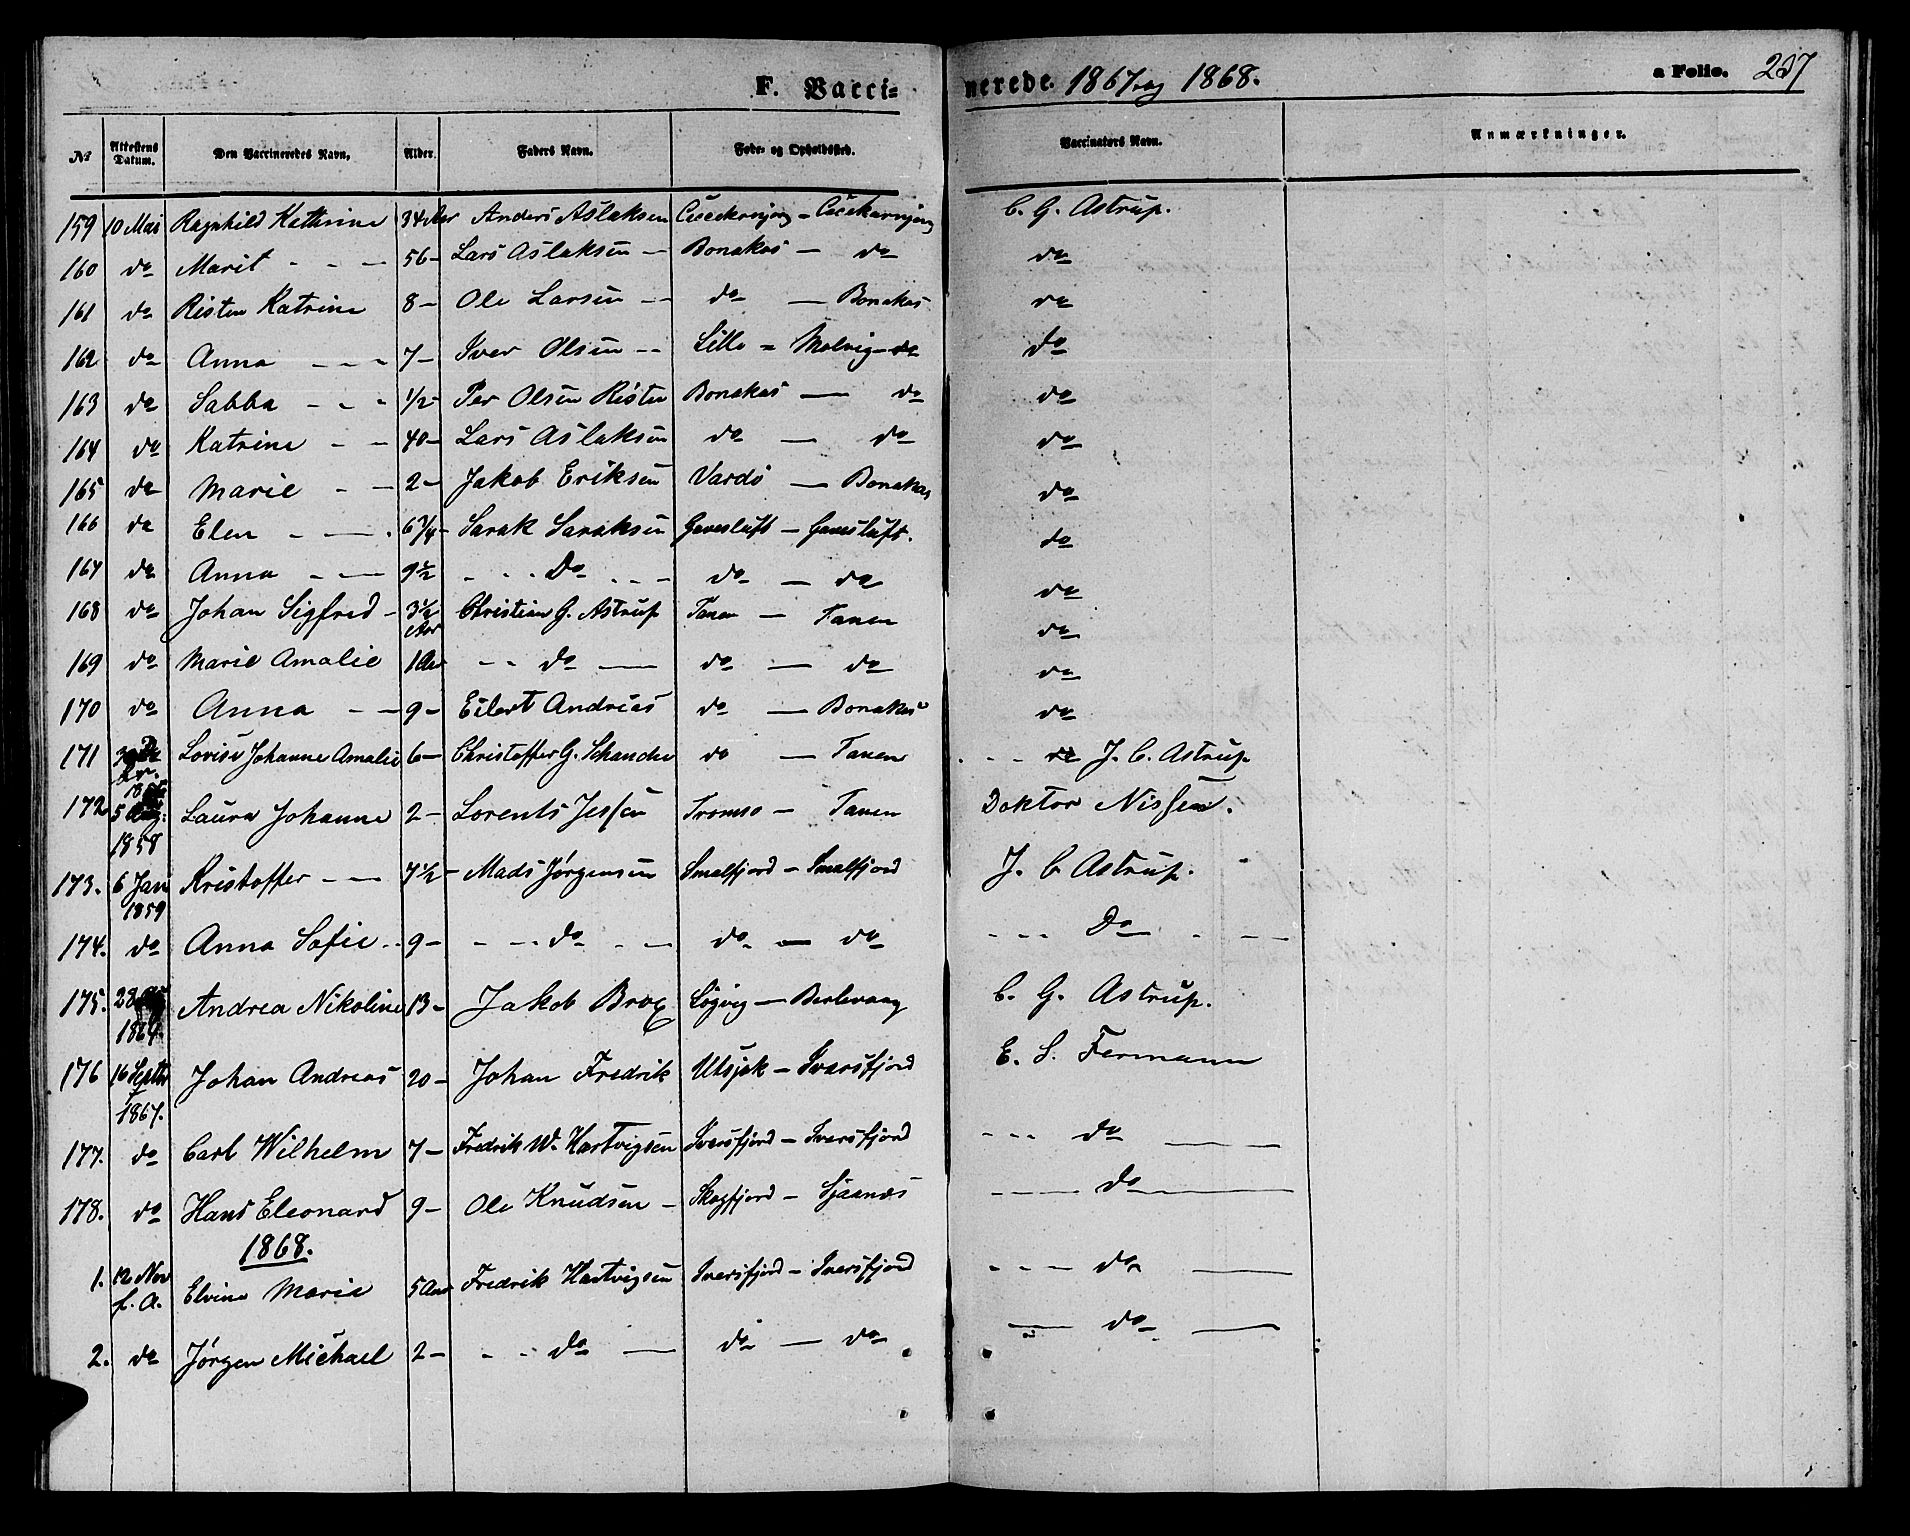 F. Vaccinerede. 1867 og 1868. a Folio. 237
No Attestens Datum. Den Vaccineredes Navn. Alder. Faders Navn. Føde- og Opholdssted. Vaccinators Navn. Anmærkninger.
159 10 Mai Ragnhild Kathrine 34 Aar Anders Aslaksen C. G. Astrup.
160 do Marit - - - 56 - Lars Aslaksen - Bonakas - do do
161 do Risten Katrine 8 - Ole Larsen - - do - Bonakas do
162 do Anna - - - 7 - Iver Olsen - - Lille = Molvig - do do
163 do Sabba - - - 1/2 - Per Olsen Risten Bonakas - do do
164 do Katrine - - 40 - Lars Aslaksen do - do do
165 do Marie - - 2 - Jakob Eriksen Vardö - Bonakas do
166 do Elen - - . 6 3/4 - Sarak Saraksen Gavesluft - Gavesluft. do
167 do Anna - - 9 1/2 - - - Do - - - do - do do
168 do Johan Sigfred - 3 1/2 Aar Christian G. Astrup Tanen - Tanen do
169 do Marie Amalie 1 Aar - - do - do - do do
170 do Anna - - 9 - Eilert Andreas do - Bonakas do
171 Lovise Johanne Amalie 6 - Christoffer G. Schanche do - Tanen - - - J. C. Astrup
172 5 Aug: 1858 Laura Johanne 2 - Lorents Jessen Tromsø - Tanen Doktor Nissen.
173. 6 Jan 1859 Kristoffer - - 7 1/2 - Mads Jørgensen Smalfjord - Smalfjord J. C Astrup.
174. do Anna Sofie - - 9 - - - - do - - do - do - - - Do - - -
175. 28 1864. Andrea Nikoline 13 - Jakob Brox Løgvig - Berlevaag C. G. Astrup.
176 16 Septbr 1867. Johan Andreas 20 - Johan Fredrik Utsjok - Ivarsfjord E. S. Fermann
177. do Carl Wilhelm 7 - Fredrik W. Hartvigsen Ivarsfjord - Ivarsfjord - - - do -
178. do Hans Eleonard 9 - Ole Knudsen - Skogfjord - Sjaanæs - - - - do -
1868.
1. 12 Nov f. A. Elvine Marie 5 Aar Fredrik Hartvigsen Ivarsfjord - Ivarsfjord - - - do -
2. do Jørgen Michael 2 - - - do - do - do - do -